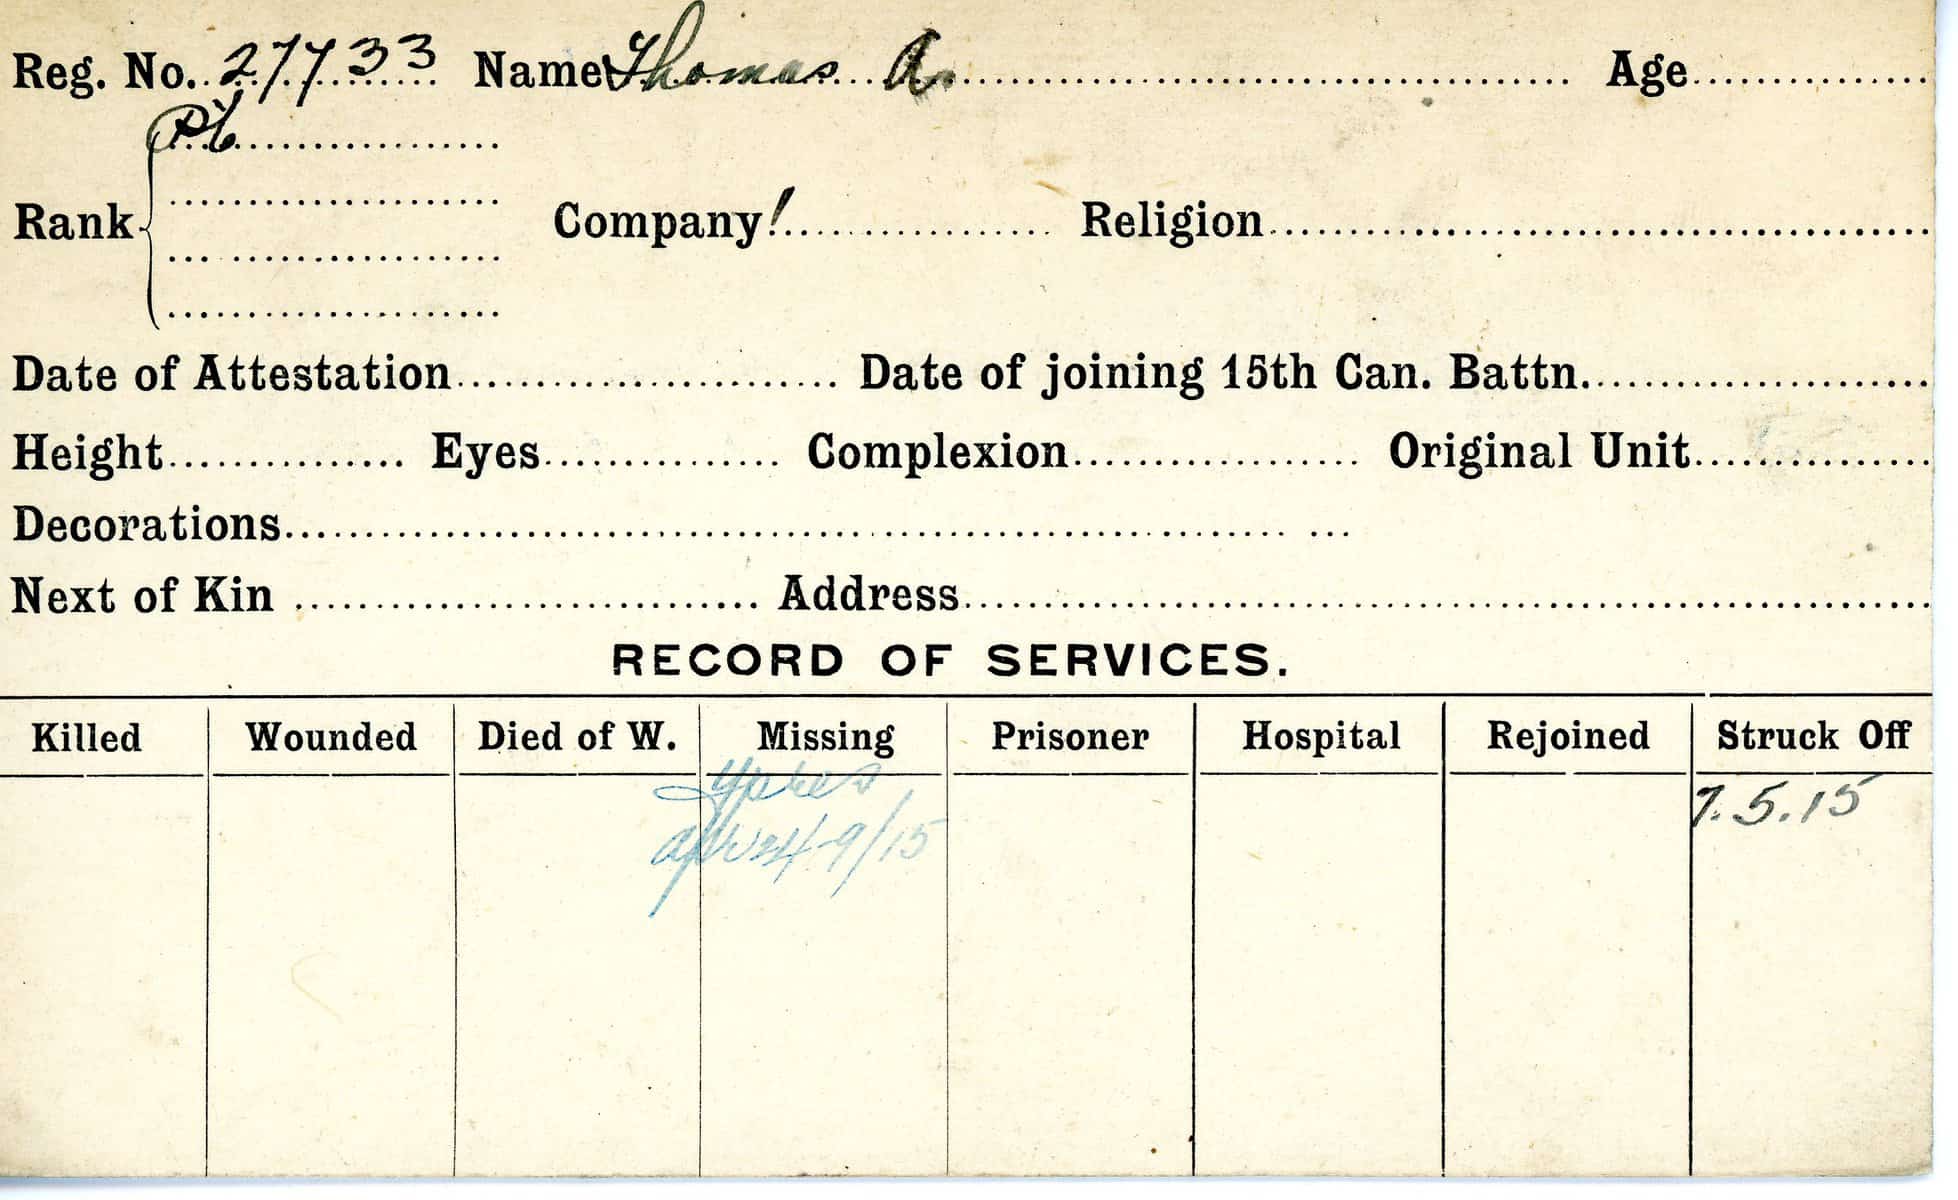 Reg. No. 27733 Name Thomas A. Age
Pt
Rank Company 1 Religion
Date of Attestation Date of joining 15th Can. Battn.
Height Eyes Complexion Original Unit
Decorations
Next of Kin Address
RECORD OF SERVICES.
Killed Wounded Died of W. Missing Prisoner Hospital Rejoined Struck Off
Ypres 7.5.15
24 9/15